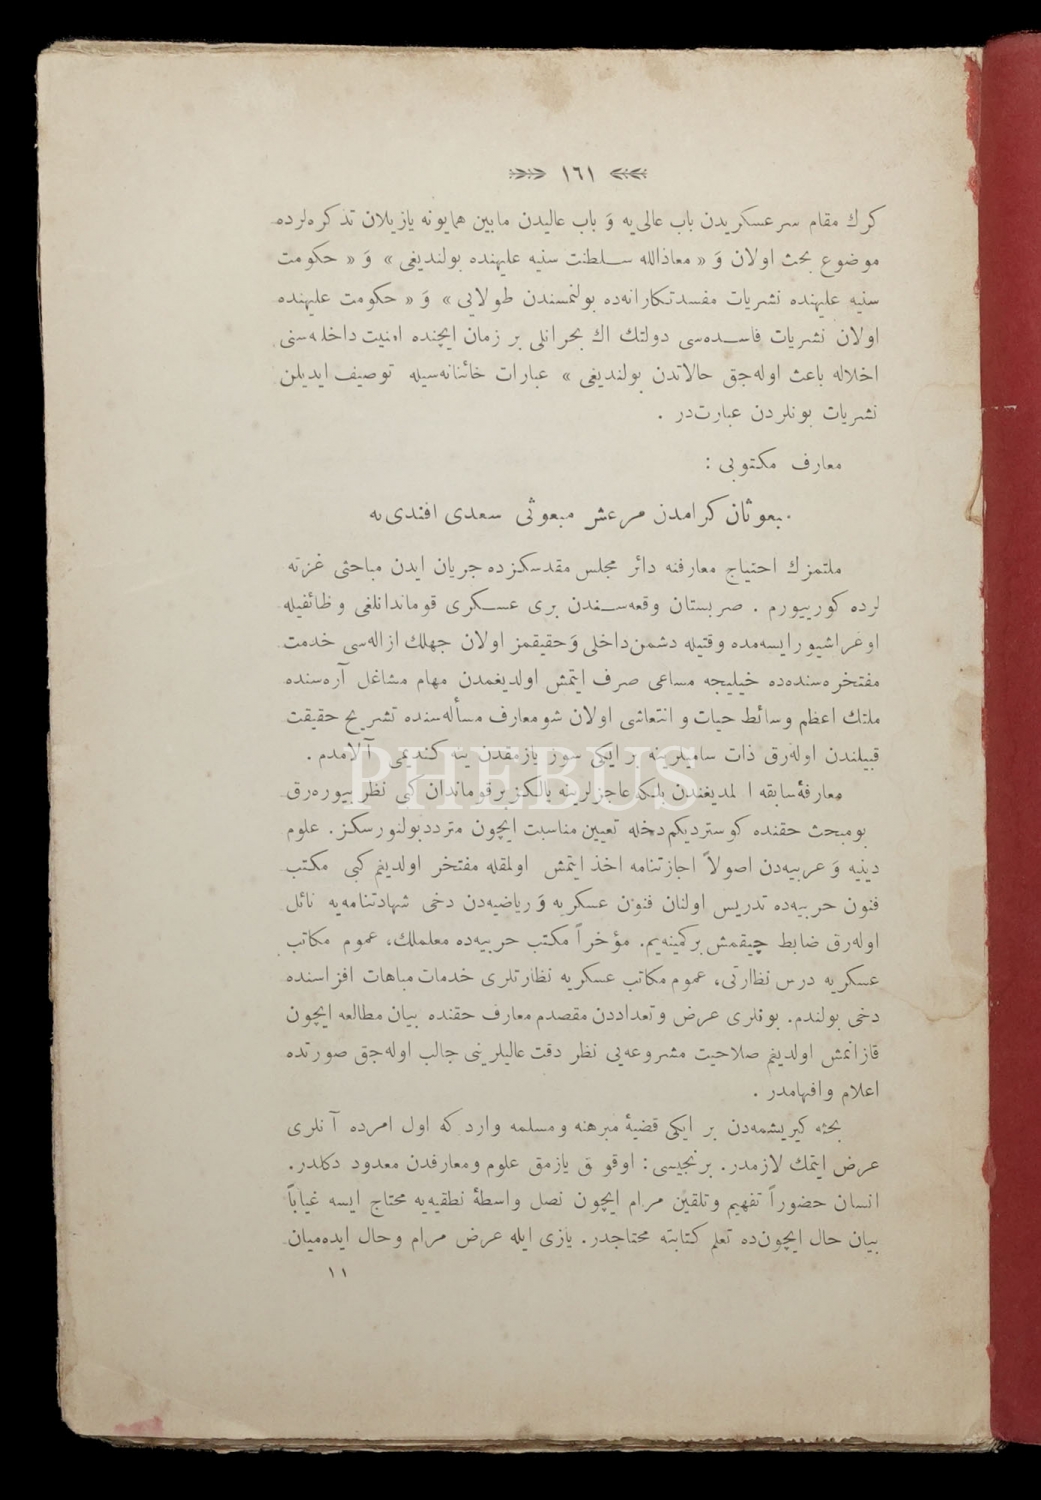 ١٦١
كرك مقام سرعسكريدن باب عالی‌يه وَ باب عاليدن مابين همايونه يازيلان تذكره‌لرده
موضوع بحث اولان وَ « معاذالله سلطنت سنيه عليهنده بولنديغی » وَ « حكومت
سنيه عليهنده نشريات مفسدتكارانه‌ده بولنمسندن طولايی » وَ « حكومت عليهنده
اولان نشريات فاسده‌سی دولتك اك بحرانلی بر زمان ايچنده امنيت داخله‌سنی
اخلاله باعث اوله‌جق حالاتدن بولنديغی » عبارات خائنانه‌سيله توصيف ايديلن
نشريات بونلردن عبارت‌در .
معارف مكتوبی :
مبعوثان كرامدن مرعش مبعوثی سعدی افندی‌يه
ملتمزك احتياج معارفنه دائر مجلس مقدسكزده جريان ايدن مباحثی غزته
لرده كورييورم . صربستان وقعه‌سندن بری عسكری قوماندانلغی وظائفيله
اوغراشيورايسه‌مده وقتيله دشمن‌داخلی وَحقيقمز اولان جهلك ازاله‌سی خدمت
مفتخره‌سنده‌ده خيليجه مساعی صرف ايتمش اولديغمدن مهام مشاغل آره‌سنده
ملتك اعظم وسائط حيات و انتعاشی اولان شومعارف مسأله‌سنده تشريح حقيقت
قبيلندن اوله‌رق ذات ساميلرينه بر ايكی سوز يازمقدن ينه كنديمی آلامدم .
معارفۀسابقه اولمديغندن بلكه عاجزلرينه يالكز برقوماندان كبی نظر بيوره‌رق
بومبحث حقنده كوسترديكم‌دخله تعيين مناسبت ايچون مترددبولنورسكز. علوم
دينيه وَ عربيه‌دن اصولاً اجازتنامه اخذ ايتمش اولمقله مفتخر اولديغم كبی مكتب
فنون حربيه‌ده تدريس اولنان فنون عسكريه وَ رياضيه‌دن دخی شهادتنامه‌يه نائل
اوله‌رق ضابط چيقمش بركمينه‌يم. مؤخراً مكتب حربيه‌ده معلملك، عموم مكاتب
عسكريه درس نظارتی، عموم مكاتب عسكريه نظارتلری خدمات مباهات افزاسنده
دخی بولندم. بونلری عرض وتعداددن مقصدم معارف حقنده بيان مطالعه ايچون
قازانمش اولديغم صلاحيت مشروعه‌يی نظر دقت عاليلرينی جالب اوله‌جق صورتده
اعلام وافهامدر .
بحثه كيريشمه‌دن بر ايكی قضيۀ مبرهنه ومسلمه وارد كه اول امرده آنلری
عرض ايتمك لازمدر. برنجيسی: اوقومق يازمق علوم ومعارفدن معدود دكلدر.
انسان حضوراً تفهيم وتلقين مرام ايچون نصل واسطۀ نطقيه‌يه محتاج ايسه غياباً
بيان حال ايچون‌ده تعلم كتابته محتاجدر. يازی ايله عرض مرام وحال ايده‌ميان
١١
PHEBUS